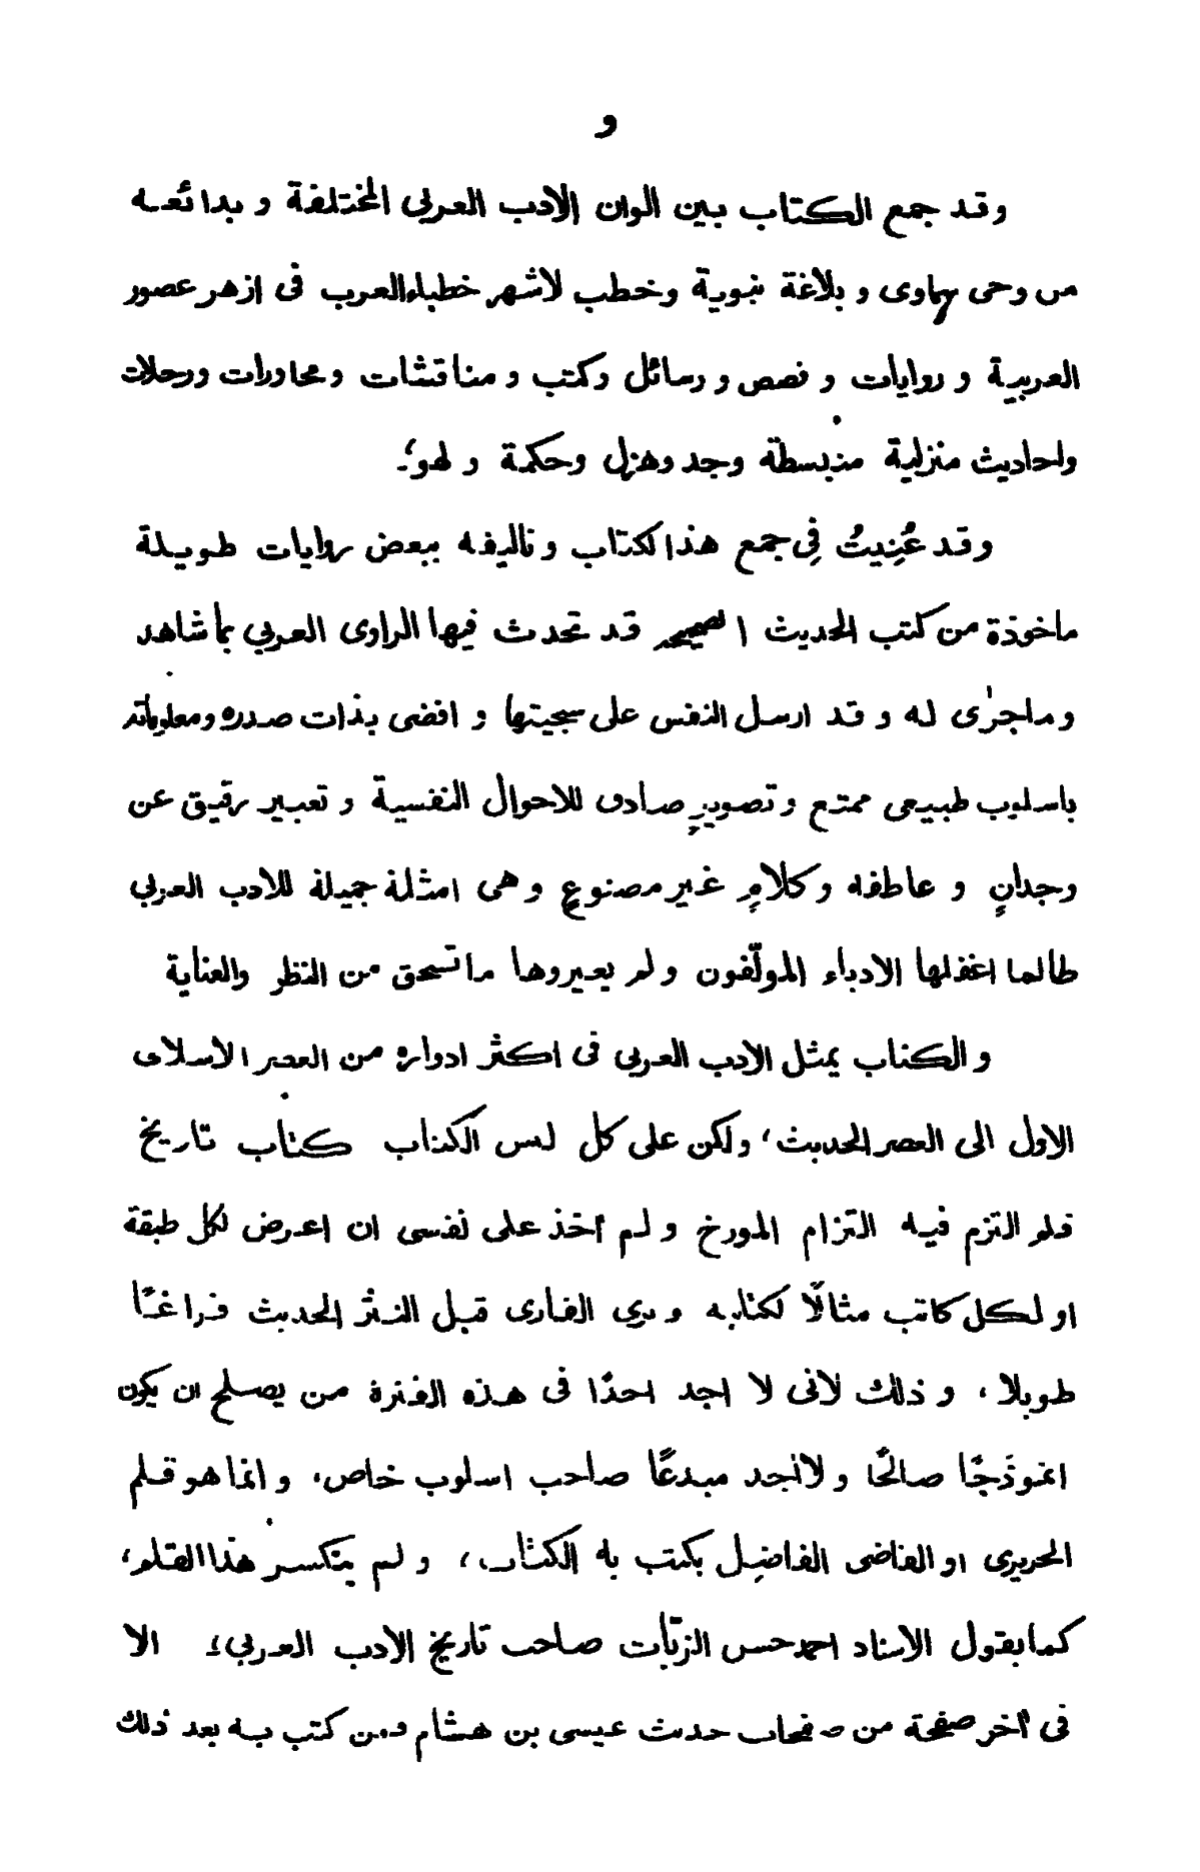 و
وقد جمع الكتاب بين الوان الادب العربى المختلفة و بدائعه
من وحى سماوى و بلاغة نبوية وخطب لاشهر خطباء العرب فى ازهر عصور
العربية و روايات و قصص و رسائل وكتب و مناقشات ومحاورات ورحلات
واحاديث منزلية منبسطة وجد وهزل وحكمة و لهو؛
وقد عُنِيتُ فِى جمع هذا الكتاب و تاليفه ببعض روايات طويلة
ماخوذة من كتب الحديث الصحيحه قد تحدث فيها الراوى العربي بما شاهد
وماجرٰى له و قد ارسل النفس على سجيتها و افضى بذات صدره ومعلوماته
باسلوب طبيعى ممتع وتصويرٍ صادق للاحوال النفسية و تعبير رقيق عن
وجدانٍ و عاطفه وكلامٍ غير مصنوعٍ و هى امثلة جميلة للادب العربي
طالما اغفلها الادباء المولّفون و لم يعيروها ما تسحق من النظر والعناية
والكتاب يمثل الادب العربى فى اكثر ادواره من العصر الاسلامى
الاول الى العصر الحديث، ولكن على كل ليس الكتاب كتاب تاريخ
فلم التزم فيه التزام المورخ و لم أخذ على نفسى ان اعرض لكل طبقة
او لكل كاتب مثالًا لكتابه و يرى القارى قبل النثر الحديث فراغًا
طويلا، و ذلك لانى لا اجد احدًا فى هذه الفترة من يصلح ان يكون
انموذجًا صالحًا و لانجد مبدعًا صاحب اسلوب خاص، و انما هو قلم
الحريرى او القاضى الفاضل يكتب به الكتاب، و لم ينكسر هذا القلم،
كما يقول الاستاذ احمد حسن الزيّات صاحب تاريخ الادب العربي؛ الا
فى أخر صفحة من صفحات حديث عيسى بن هشام ومن كتب به بعد ذلك